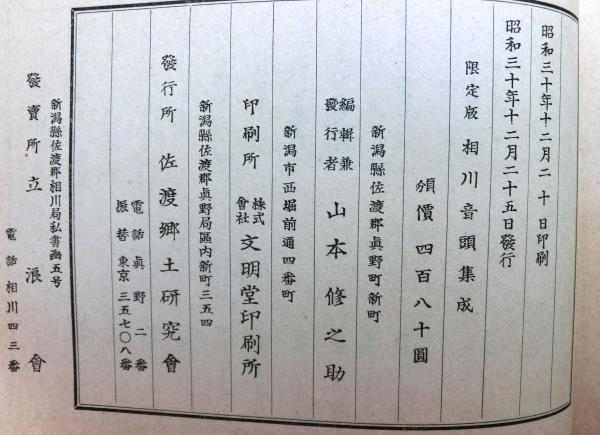 昭和三十年十二月二十日印刷
昭和三十年十二月二十五日發行
限定版 相川音頭集成
頒價 四百八十圓
新潟縣佐渡郡眞野町新町
編輯兼發行者 山本修之助
新潟市西堀前通四番町
印刷所 株式會社 文明堂印刷所
新潟縣佐渡郡眞野局區内新町三五四
發行所 佐渡郷土研究會
電話眞野二番
振替東京三五七〇八番
新潟縣佐渡郡相川局私書函五号
發賣所 立浪會
電話相川四三番